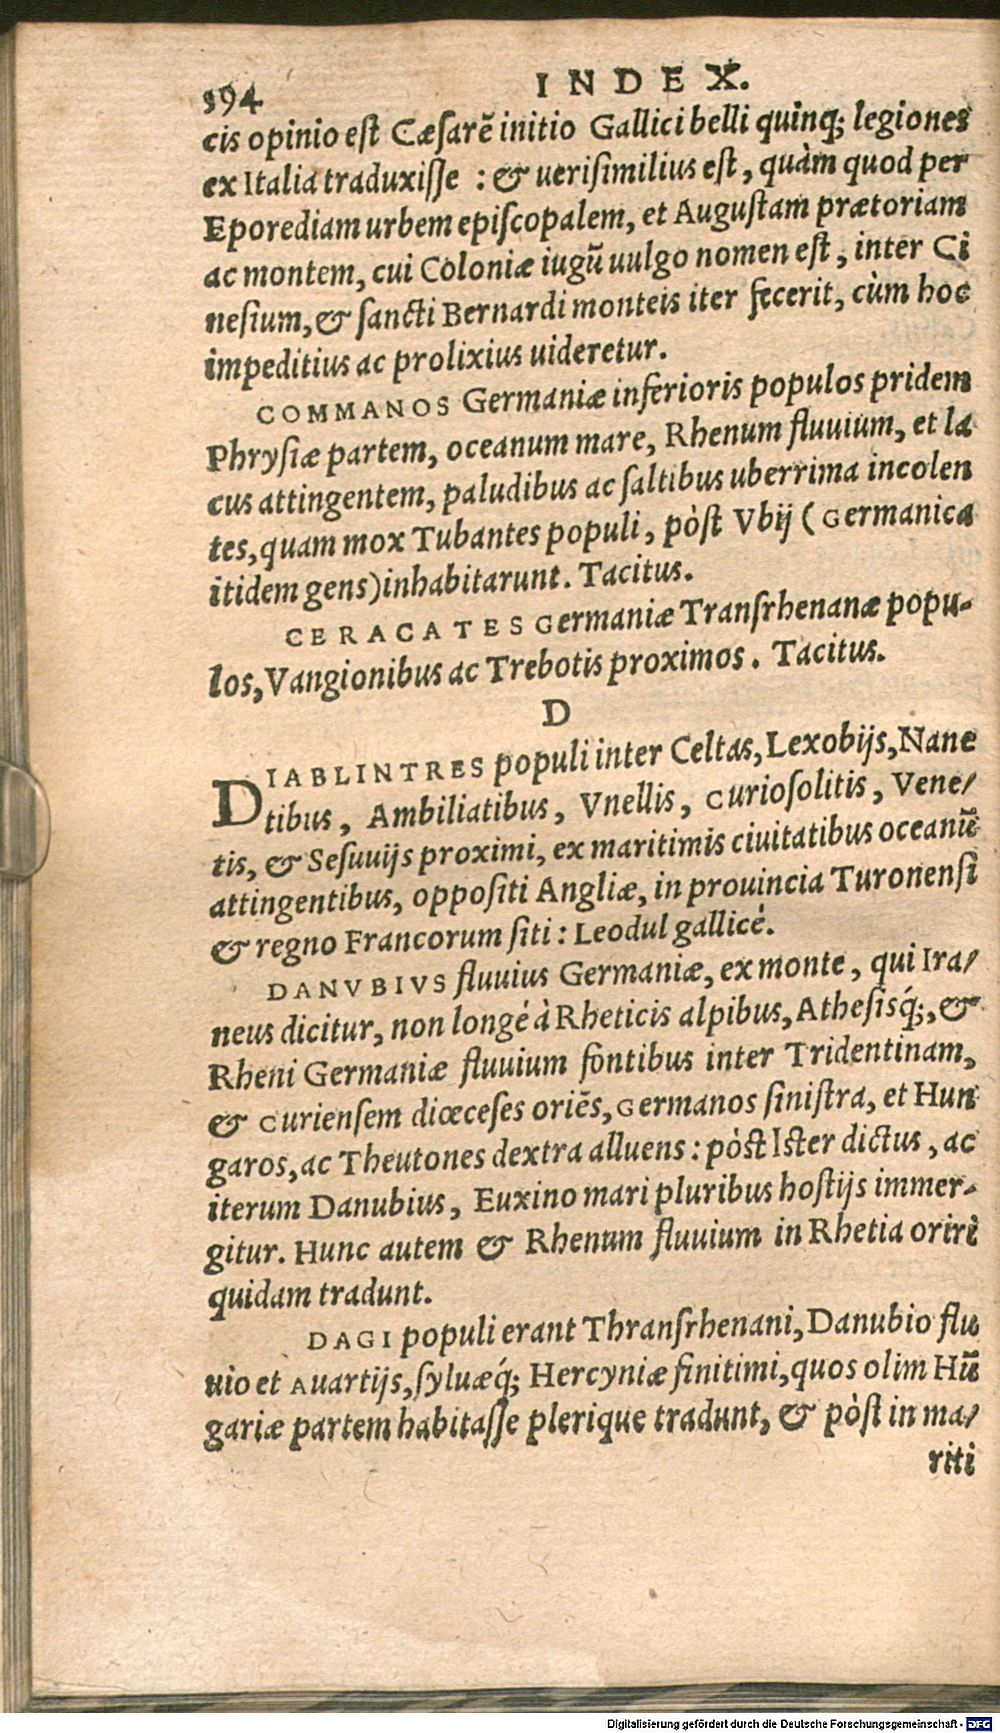 394 INDEX.
cis opinio est Cæsarẽ initio Gallici belli quinq; legiones
ex Italia traduxisse : & uerisimilius est, quàm quod per
Eporediam urbem episcopalem, et Augustam prætoriam
ac montem, cui Coloniæ iugũ uulgo nomen est, inter Ci
nesium, & sancti Bernardi monteis iter fecerit, cùm hoc
impeditius ac prolixius uideretur.
COMMANOS Germaniæ inferioris populos pridem
Phrysiæ partem, oceanum mare, Rhenum fluuium, et la
cus attingentem, paludibus ac saltibus uberrima incolen
tes, quam mox Tubantes populi, pòst Vbij (Germanica
itidem gens) inhabitarunt. Tacitus.
CERACATES Germaniæ Transrhenanæ popu-
los, Vangionibus ac Trebotis proximos. Tacitus.
D
DIABLINTRES populi inter Celtas, Lexobijs, Nane
tibus, Ambiliatibus, Vnellis, Curiosolitis, Vene/
tis, & Sesuuijs proximi, ex maritimis ciuitatibus oceanũ
attingentibus, oppositi Angliæ, in prouincia Turonensi
& regno Francorum siti : Leodul gallicè.
DANVBIVS fluuius Germaniæ, ex monte, qui Ira/
neus dicitur, non longè à Rheticis alpibus, Athesisq́;, &
Rheni Germaniæ fluuium fontibus inter Tridentinam,
& Curiensem diœceses oriẽs, Germanos sinistra, et Hun
garos, ac Theutones dextra alluens : pòst Ister dictus, ac
iterum Danubius, Euxino mari pluribus hostijs immer-
gitur. Hunc autem & Rhenum fluuium in Rhetia oriri
quidam tradunt.
DAGI populi erant Thransrhenani, Danubio flu
uio et Auartijs, syluæq́; Hercyniæ finitimi, quos olim Hũ
gariæ partem habitasse plerique tradunt, & pòst in ma/
riti
Digitalisierung gefördert durch die Deutsche Forschungsgemeinschaft - DFG